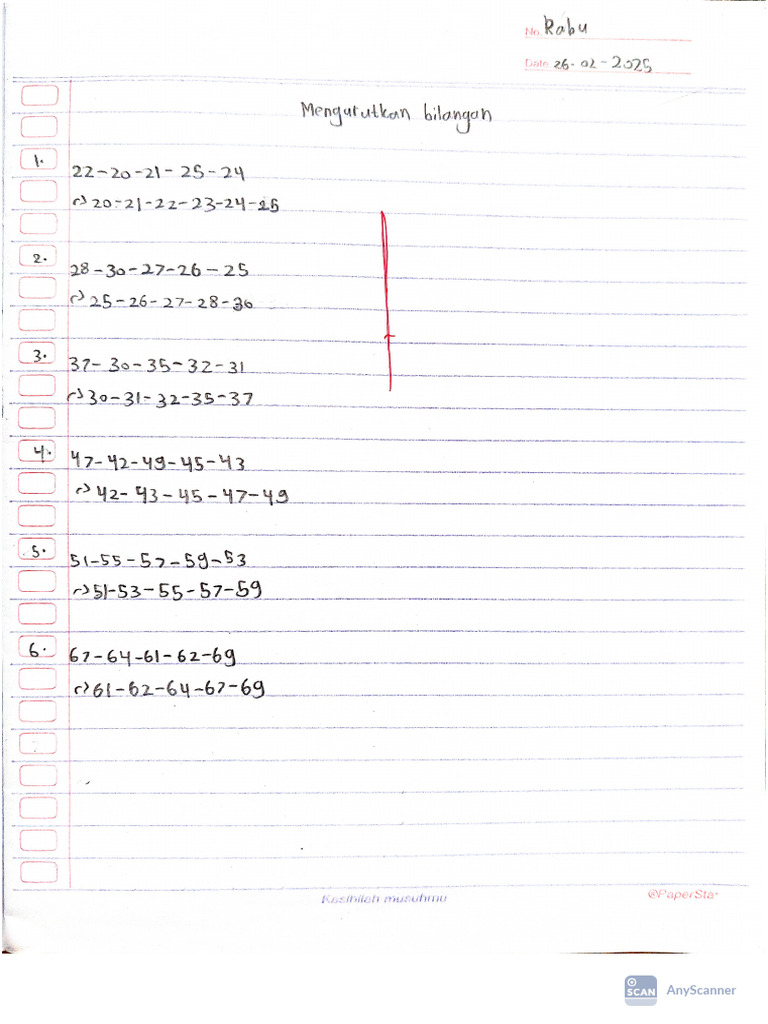 No. Rabu
Date 26-02-2025
Mengurutkan bilangan
1.
22-20-21-25-24
20-21-22-23-24-25
2.
28-30-27-26-25
25-26-27-28-30
3.
37-30-35-32-31
30-31-32-35-37
4.
47-42-49-45-43
42-43-45-47-49
5.
51-55-57-59-53
51-53-55-57-59
6.
67-64-61-62-69
61-62-64-67-69
Kasihilah musuhmu
©PaperSta
SCAN AnyScanner